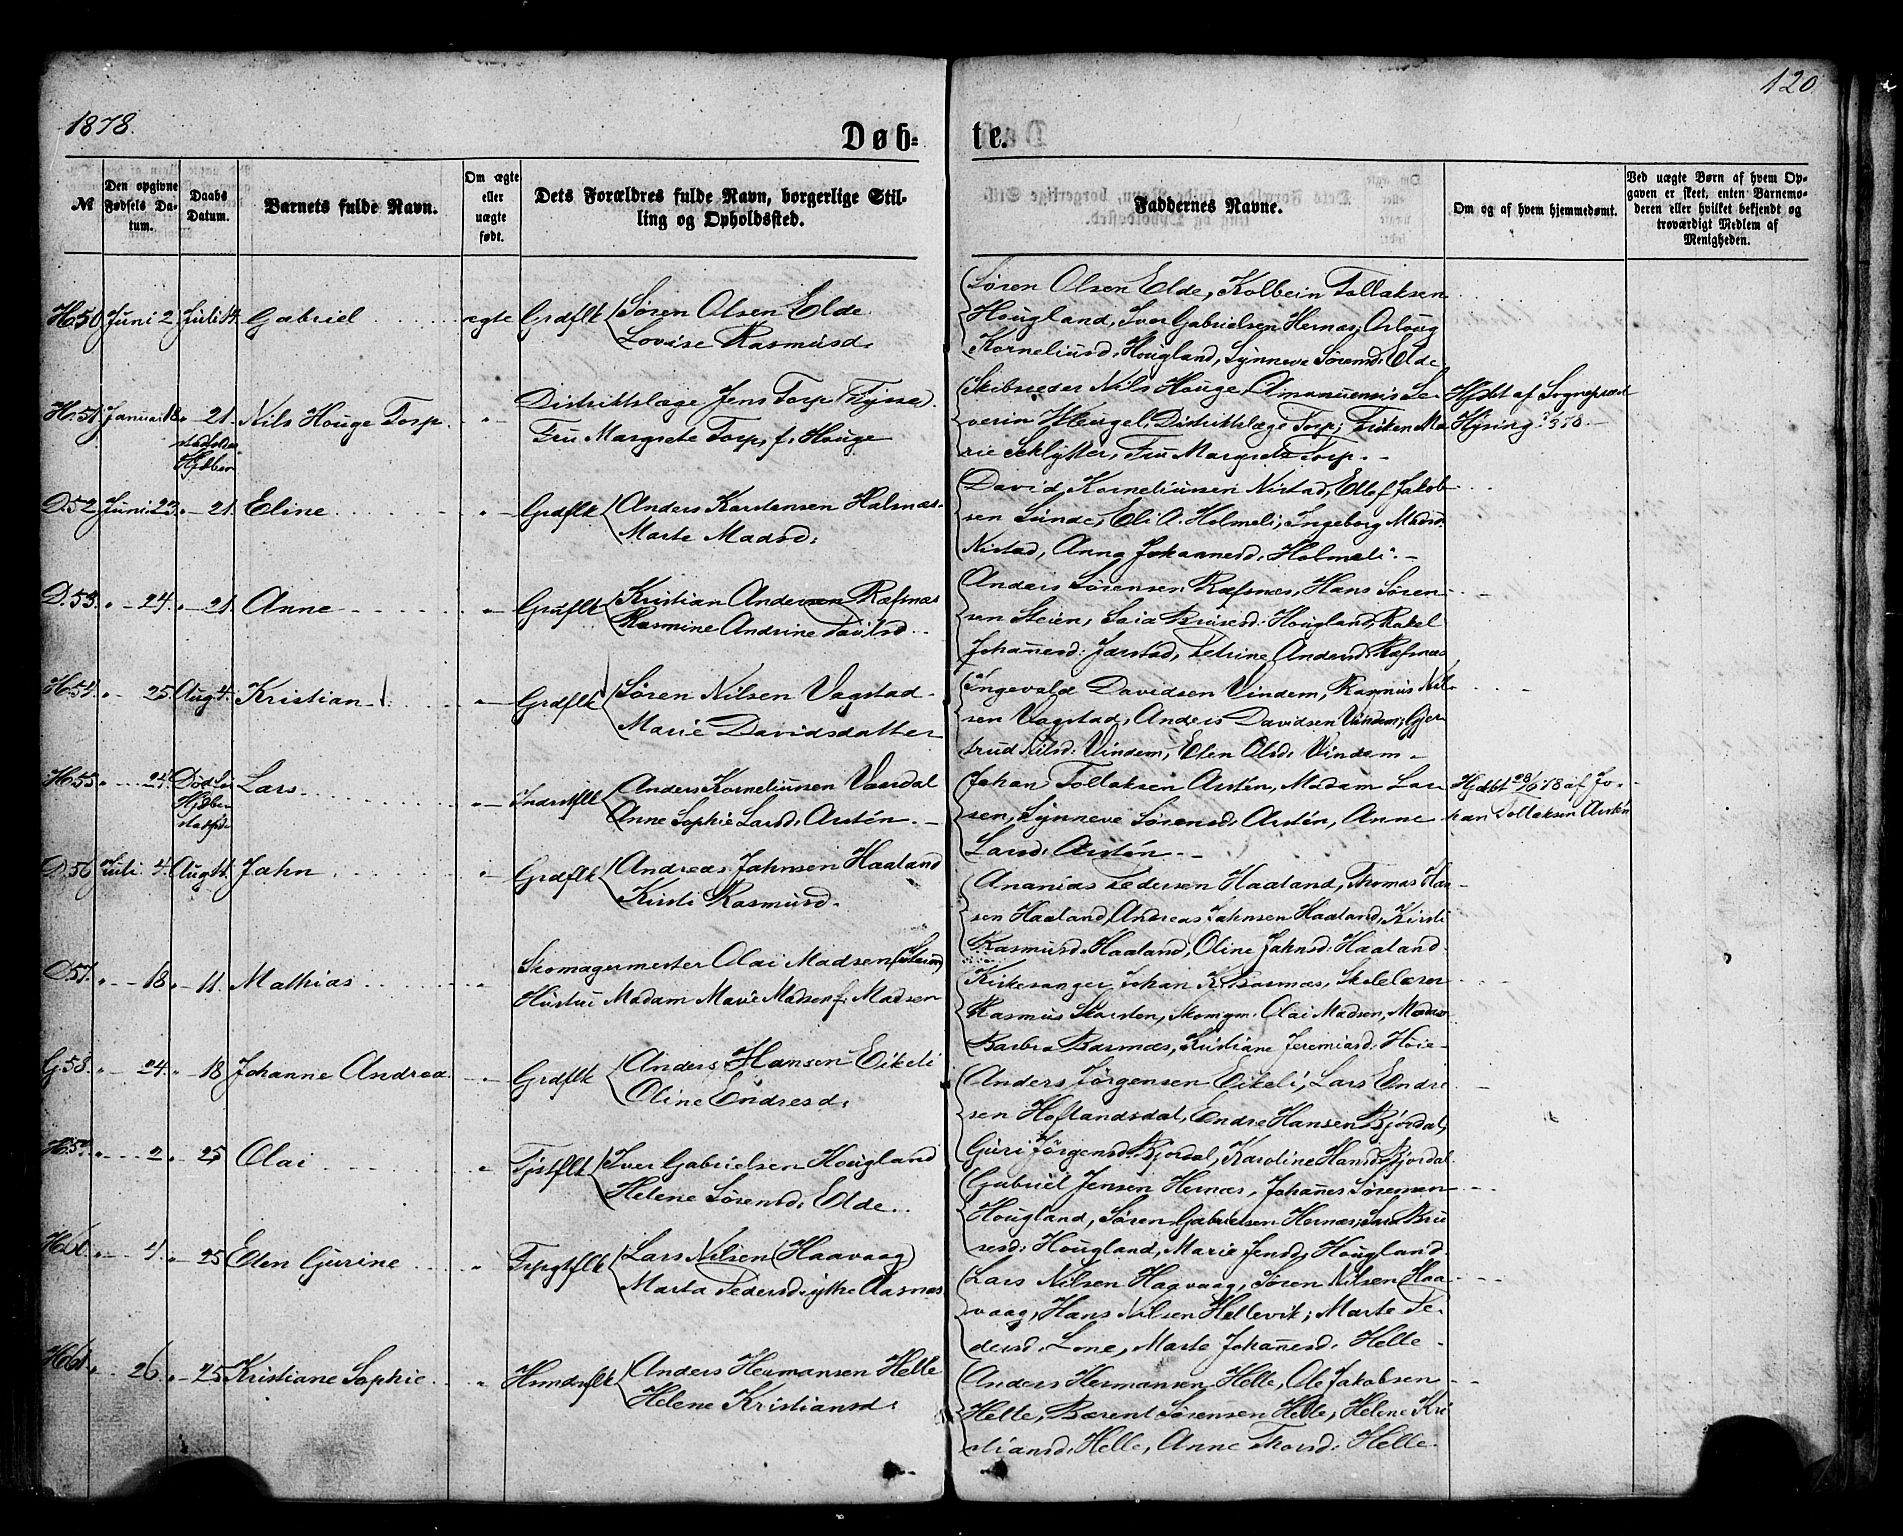 1878.
120
Døb-
te.
№
Den opgivne Fødsels Datum.
Daabs Datum.
Barnets fulde Navn.
Om ægte eller uægte født.
Dets Forældres fulde Navn, borgerlige Stilling og Opholdssted.
Faddernes Navne.
Om og af hvem hjemmedøbt.
Ved uægte Børn af hvem Opgaven er skeet, enten Barnemoderen eller hvilket bekjendt og troværdigt Medlem af Menigheden.
H.50 Juni 2. Juli 14. Gabriel ægte Grdflk Søren Olsen Elde
Lovise Rasmusd.
Søren Olsen Elde, Kolbein Tollaksen
Hougland, Iver Gabrielsen Hernæs, Asloug
Korneliusd. Hougland, Synneve Sørensd. Elde
H.51. Januar 18. „ 21. Nils Houge Torp „ Distriktslæge Jens Torp
Fru Margrete Torp, f. Houge
Skibsreder Nils Houge, Amanuensis Se-
verin Heugel, Distriktslæge Torp, Frøken Ma-
rie Schlytter, Fru Margrete Torp.
Hjdbt af Sognepræst
Hysing
D.52 Juni 23. „ 21. Eline „ Grdflk Anders Karstensen Halsnæs
Marte Madsd.
David Korneliussen Nistad, Ellef Jakob-
sen Sunde, Eli A. Holmeli, Ingeborg Madsd.
Nistad, Anna Johannesd. Holmeli.
D.53. „ 24. „ 21. Anne „ Grdflk Kristian Andersen Ræfsnæs
Rasmine Andrine Paulsd.
Anders Sørensen Ræfsnæs, Hans Søren-
sen Steien, Hougland, Rakel
Johannesd. Jarstad, Petrine Andersd. Ræfsnæs
H.54. „ 25. Aug. 4. Kristian „ Grdflk Søren Nilsen Vagstad
Marie Davidsdatter
Ingevald Davidsen Vindem, Rasmus Nil-
sen Vagstad, Anders Davidsen Vindem, Gjer-
trud Nilsd. Vindem, Elen Olsd. Vindem
H.55 „ 24. Lars „ Indrstflk Anders Korneliussen Vaardal
Anne Sophie Larsd. Arstén.
Johan Tollaksen Arstén, Madam Lar-
sen, Synneve Sørensd. Arstén, Anne
Larsd. Arstén
Hjdbt 28/6 78 af Jo-
han Tollaksen Arstén
D.56 Juli 4. Aug. 11. Jahn „ Grdflk Andreas Jahnsen Haaland
Kirsti Rasmusd.
Ananias Pedersen Haaland, Thomas Han-
sen Haaland, Andreas Jahnsen Haaland, Kirsti
Rasmusd. Haaland, Oline Jahnsd. Haaland.
D.57. „ 18 „ 11. Mathias „ Skomagermester Olai Madsen
Hustru Madam Marie Madsen f. Madsen
Kirkesanger Johan K. Barsnæs, Skolelærer
Rasmus Skorsten, Skomgm. Olai Madsen, Madm.
Barbra Barsnæs, Kristiane Jeremiasd. Høie
G.58. „ 24. „ 18 Johanne Andrea „ Grdflk Anders Hansen Eikeli
Oline Endresd.
Anders Jørgensen Eikeli, Lars Endre-
sen Hoflandsdal, Endre Hansen Bjordal,
Guri Jørgensd. Bjordal, Karoline Hansd. Bjordal.
H.59. „ 2 „ 25 Olai „ Tjstflk Iver Gabrielsen Hougland
Helene Sørensd. Elde
Gabriel Jensen Hernæs, Johannes Sørensen
Hougland, Søren Gabrielsen Hernæs,
Hougland, Marie Jensd. Hougland
H.60. „ 4. „ 25 Elen Gurine „ Lars Nilsen (Haavaag)
Marta Pedersd. Aasnæs
Lars Nilsen Haavaag, Søren Nilsen Haa-
vaag, Hans Nilsen Hellevik, Marte Pe-
dersd. Lone, Marte Johannesd. Helle
H.61. „ 26 „ 25 Kristiane Sophie „ Hsmdsflk Anders Hermansen Helle
Helene Kristiansd.
Anders Hermansen Helle, Ole Jakobsen
Helle, Bærent Sørensen Helle, Helene Kri-
stiansd. Helle, Anne Thorsd. Helle